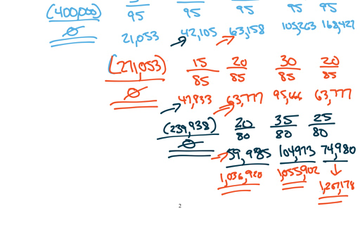 (400,000) 95 95 95 95 95
21,053 42,105 63,158
(271,053) 15/85 20/85 30/85 20/85
63,777 63,777
(239,938) 20/80 35/80 25/80
59,985 104,973 74,980
1,036,920 1,055,902
1,207,178
2